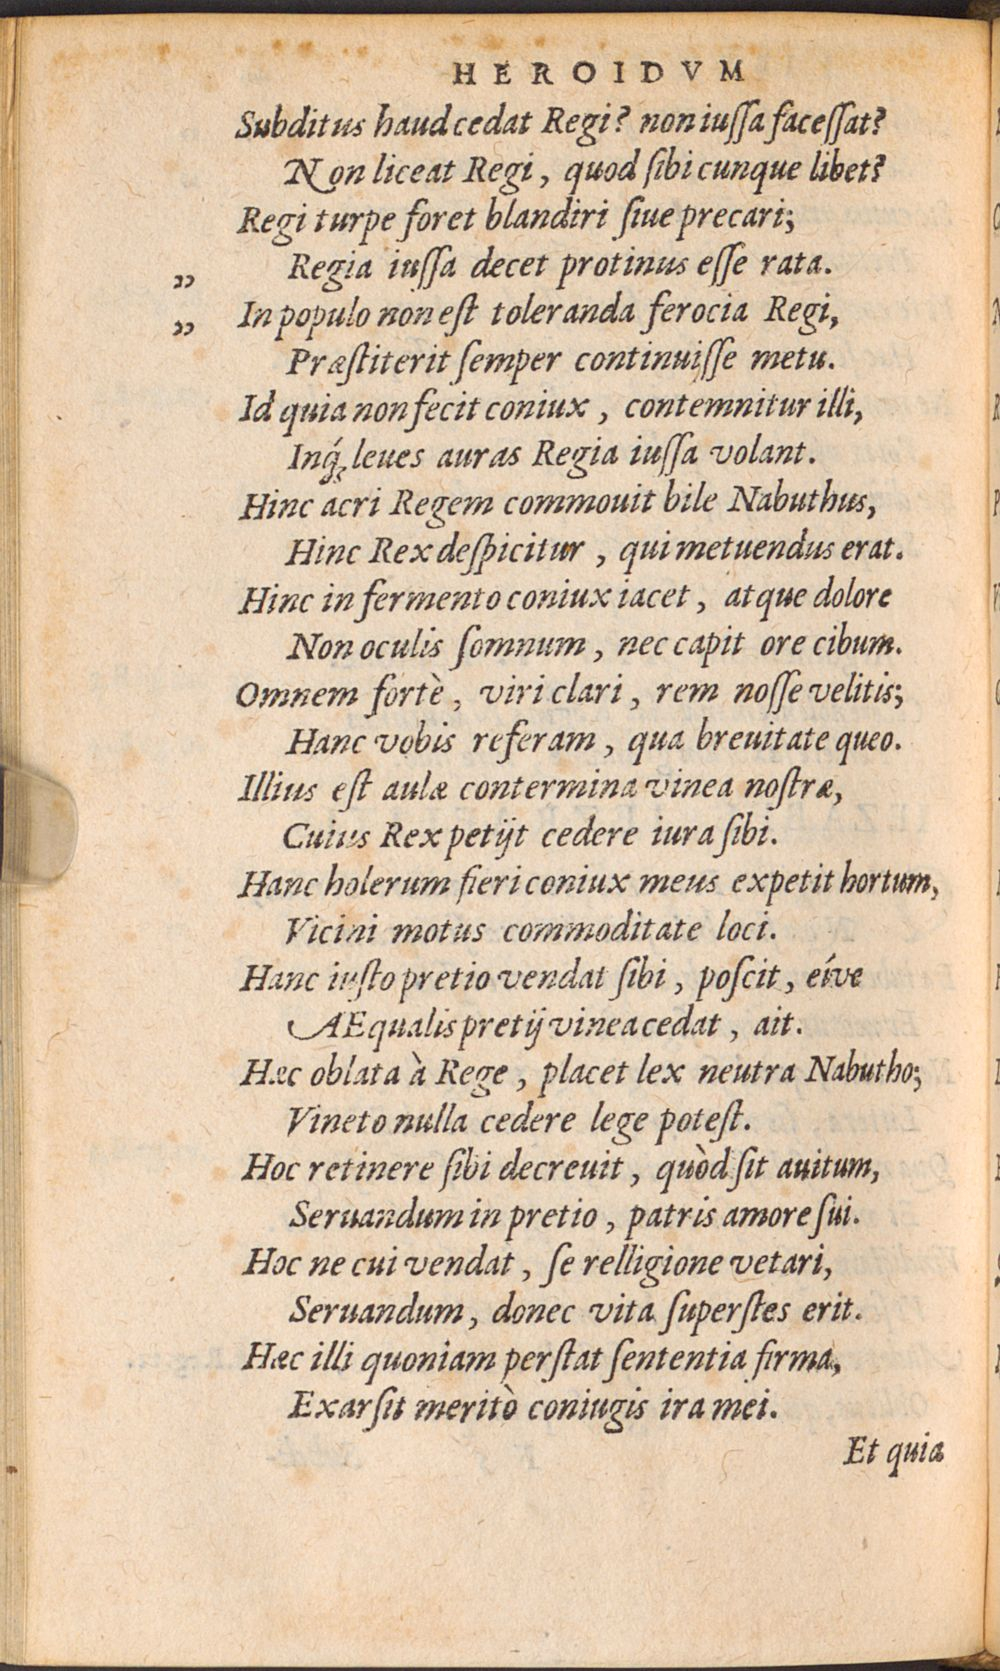 HEROIDVM
Subditus haud cedat Regi? non iuſſa faceſſat?
Non liceat Regi, quod ſibi cunque libet?
Regi turpe foret blandiri ſiue precari;
„ Regia iuſſa decet protinus eſſe rata.
„ In populo non eſt toleranda ferocia Regi,
Præſtiterit ſemper continuiſſe metu.
Id quia non fecit coniux, contemnitur illi,
Inq́; leues auras Regia iuſſa volant.
Hinc acri Regem commouit bile Nabuthus,
Hinc Rex deſpicitur, qui metuendus erat.
Hinc in fermento coniux iacet, atque dolore
Non oculis ſomnum, nec capit ore cibum.
Omnem fortè, viri clari, rem noſſe velitis;
Hanc vobis referam, qua breuitate queo.
Illius eſt aulæ contermina vinea noſtræ,
Cuius Rex petijt cedere iura ſibi.
Hanc holerum fieri coniux meus expetit hortum,
Vicini motus commoditate loci.
Hanc iuſto pretio vendat ſibi, poſcit, eíve
AEqualis pretij vinea cedat, ait.
Hæc oblata à Rege, placet lex neutra Nabutho;
Vineto nulla cedere lege poteſt.
Hoc retinere ſibi decreuit, quòd ſit auitum,
Seruandum in pretio, patris amore ſui.
Hoc ne cui vendat, ſe relligione vetari,
Seruandum, donec vita ſuperſtes erit.
Hæc illi quoniam perſtat ſententia firma,
Exarſit meritò coniugis ira mei.
Et quia